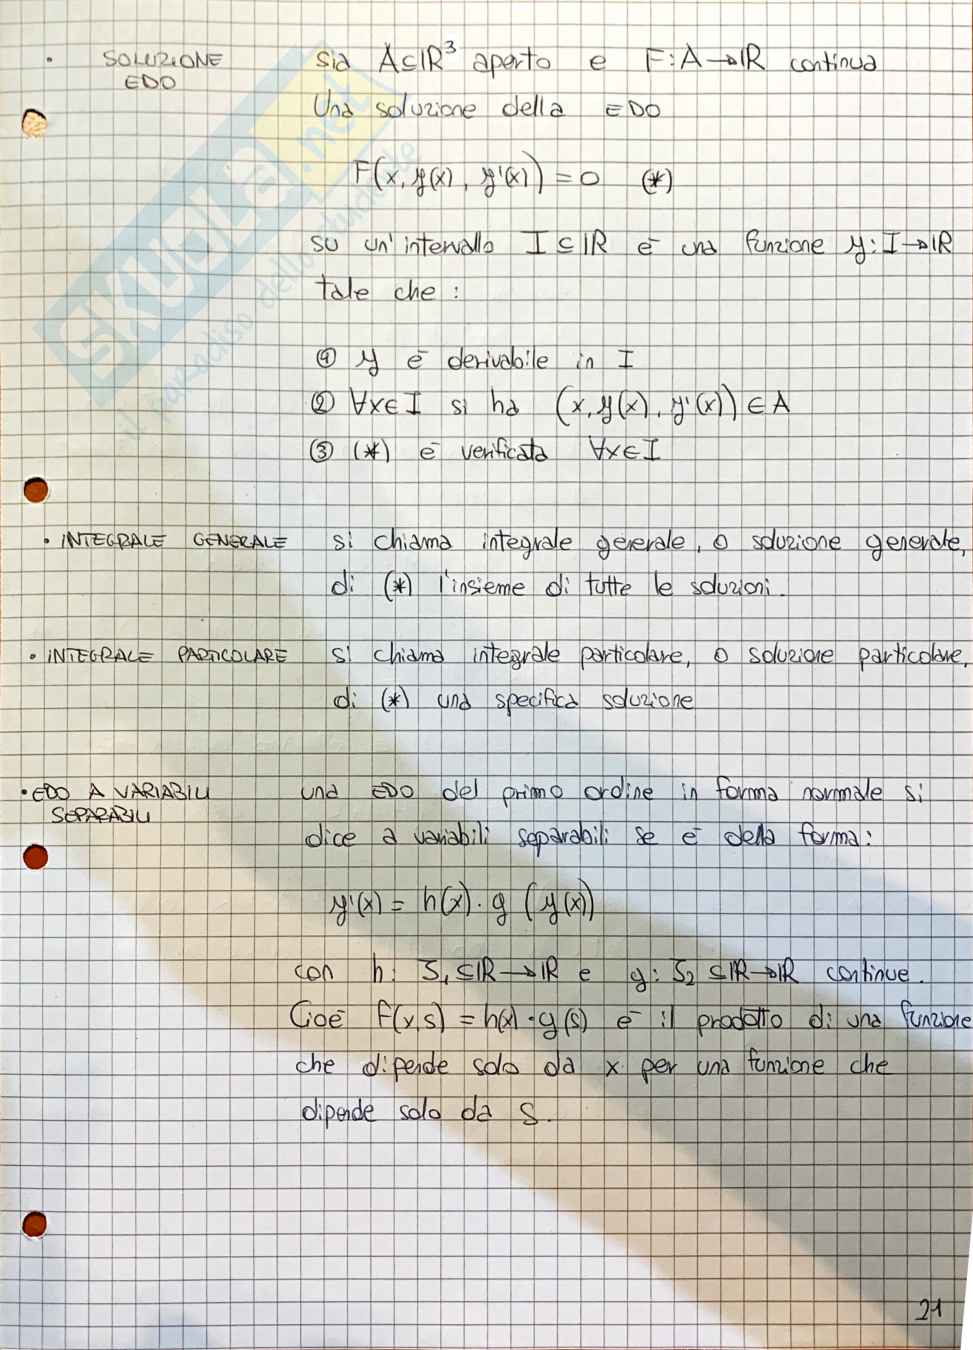 • SOLUZIONE EDO
sia A⊆ℝ³ aperto e F:A→ℝ continua
Una soluzione della EDO
F(x, y(x), y'(x)) = 0 (*)
su un'intervallo I⊆ℝ è una funzione y:I→ℝ
tale che :
① y è derivabile in I
② ∀x∈I si ha (x, y(x), y'(x))∈A
③ (*) è verificata ∀x∈I
• INTEGRALE GENERALE si chiama integrale generale, o soluzione generale,
di (*) l'insieme di tutte le soluzioni.
• INTEGRALE PARTICOLARE si chiama integrale particolare, o soluzione particolare,
di (*) una specifica soluzione
• EDO A VARIABILI SEPARABILI
una EDO del primo ordine in forma normale si
dice a variabili separabili se è della forma:
y'(x) = h(x)·g (y(x))
con h: J₁⊆ℝ→ℝ e g: J₂⊆ℝ→ℝ continue.
Cioè f(x,s) = h(x)·g(s) è il prodotto di una funzione
che dipende solo da x per una funzione che
dipende solo da s.
21
SKUOLA.net
il paradiso dello studente